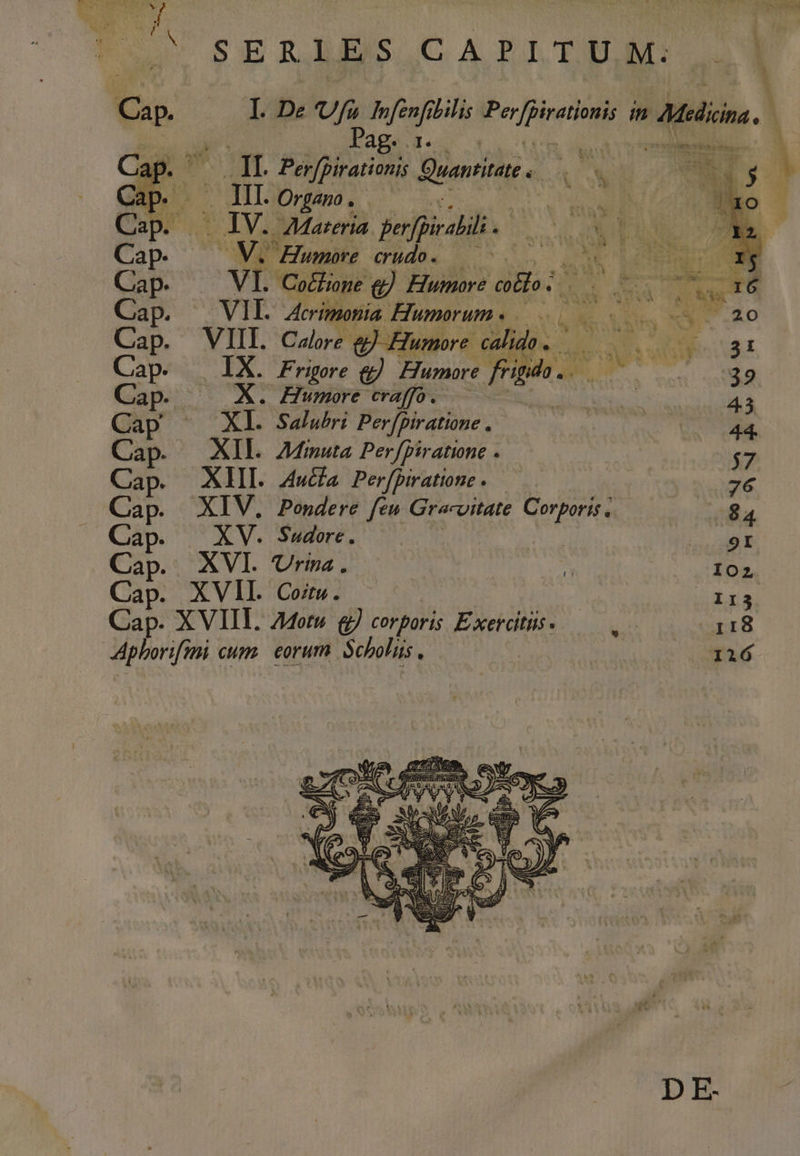 SERIES CAPITUM.
Cap. I. De Uſu Inſenſibilis Perſpirationis in Medicina.
Pag. 1.
Cap. II. Perſpirationis Quantitate. 5
Cap. III. Organo. 10
Cap. IV. Materia perſpirabili. 12
Cap. V. Humore crudo. 15
Cap. VI. Coctione & Humore cocto. 16
Cap. VII. Acrimonia Humorum. 20
Cap. VIII. Calore & Humore calido. 31
Cap. IX. Frigore & Humore frigido. 39
Cap. X. Humore craſſo. 43
Cap XI. Salubri Perſpiratione. 44
Cap. XII. Minuta Perſpiratione. 57
Cap. XIII. Aucta Perſpiratione. 76
Cap. XIV. Pondere ſeu Gravitate Corporis. 84
Cap. XV. Sudore. 91
Cap. XVI. Urina. 102
Cap. XVII. Coitu. 113
Cap. XVIII. Motu & corporis Exercitiis. 118
Aphoriſmi cum eorum Scholiis. 126
DE-